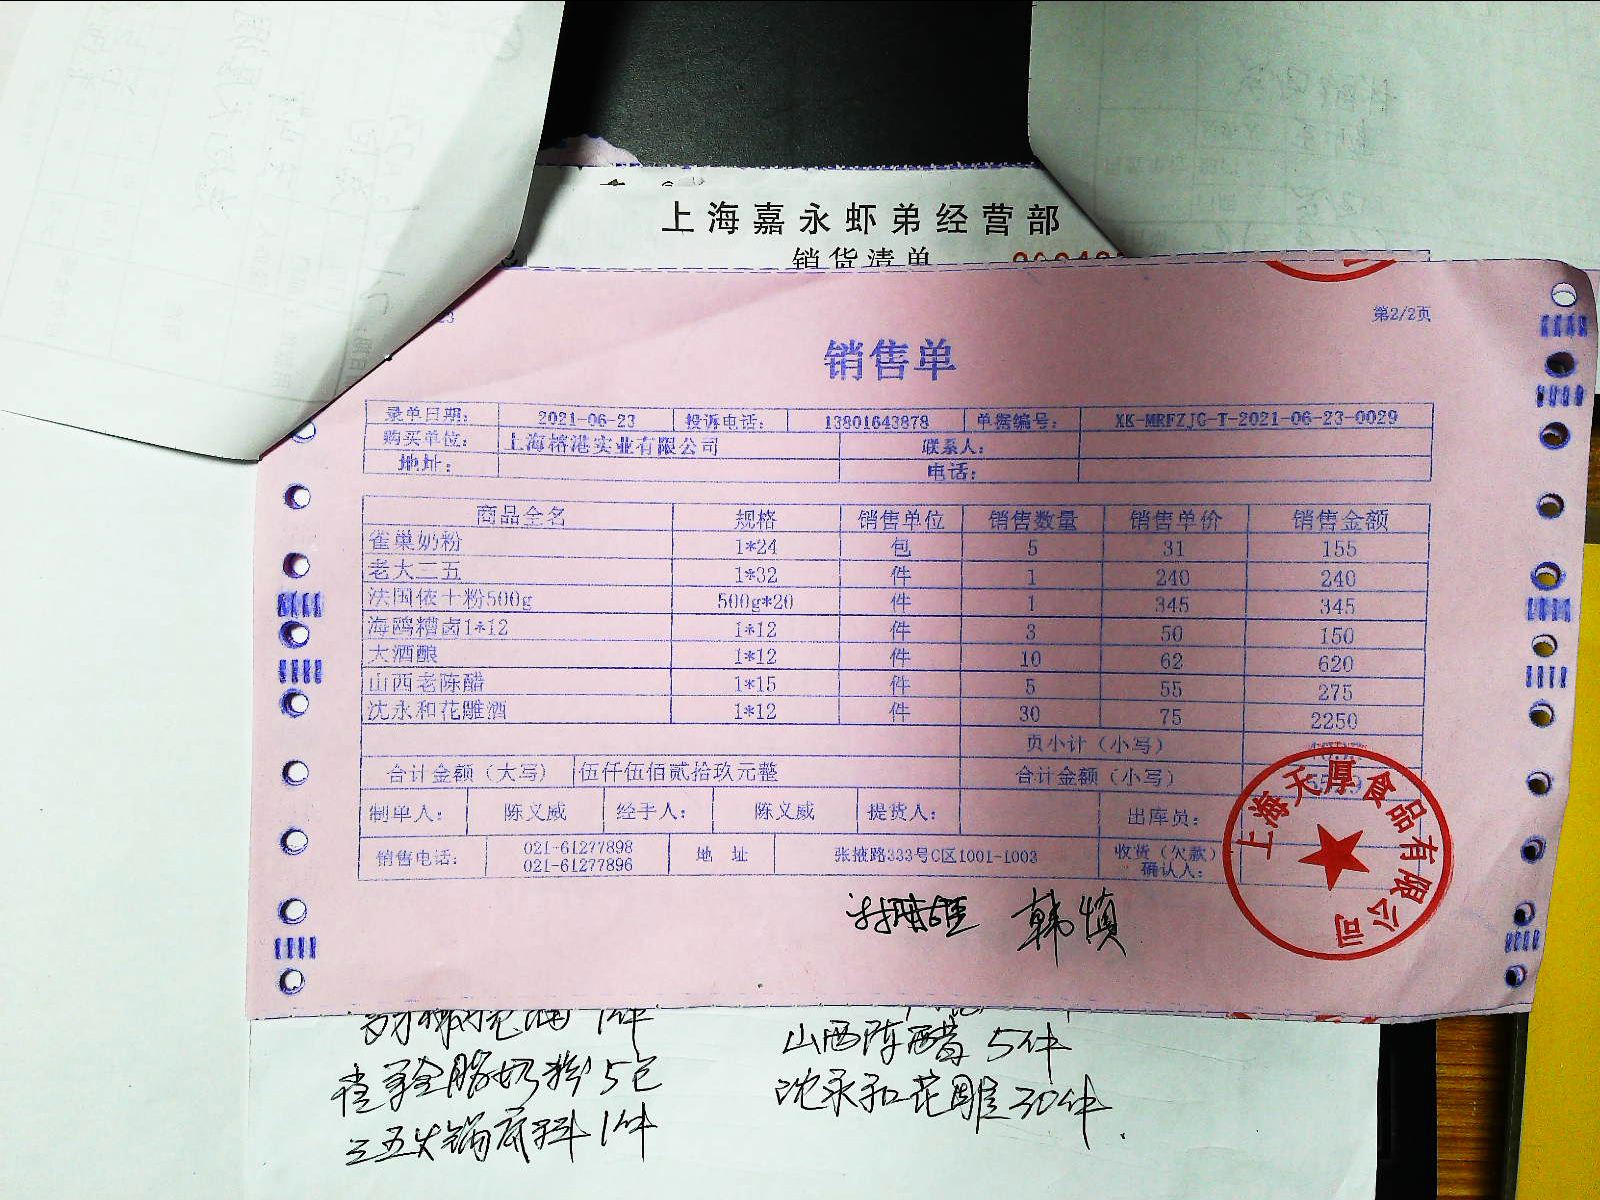 上海嘉永虾弟经营部
销货清单
23
第2/2页
销售单
录单日期: 2021-06-23 投诉电话: 13801643878 单据编号: XK-MRFZJG-T-2021-06-23-0029
购买单位: 上海榕港实业有限公司 联系人:
地址: 电话:
商品全名 规格 销售单位 销售数量 销售单价 销售金额
雀巢奶粉 1*24 包 5 31 155
老大三五 1*32 件 1 240 240
法国依士粉500g 500g*20 件 1 345 345
海鸥糟卤1*12 1*12 件 3 50 150
大酒酿 1*12 件 10 62 620
山西老陈醋 1*15 件 5 55 275
沈永和花雕酒 1*12 件 30 75 2250
页小计（小写）
合计金额（大写） 伍仟伍佰贰拾玖元整 合计金额（小写）
制单人: 陈义威 经手人: 陈义威 提货人: 出库员:
销售电话: 021-61277898 地 址 张掖路333号C区1001-1003 收货（欠款）
021-61277896 确认人:
上海天厚食品有限公司
韩慎
1件
山西陈醋 5件
雀巢全脂奶粉 5包
沈永和花雕 30件
三五火锅底料 1件